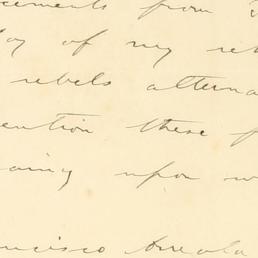 cements from
day of my re
rebels alterna
ention these f
aing upon w
ncisco Arreola